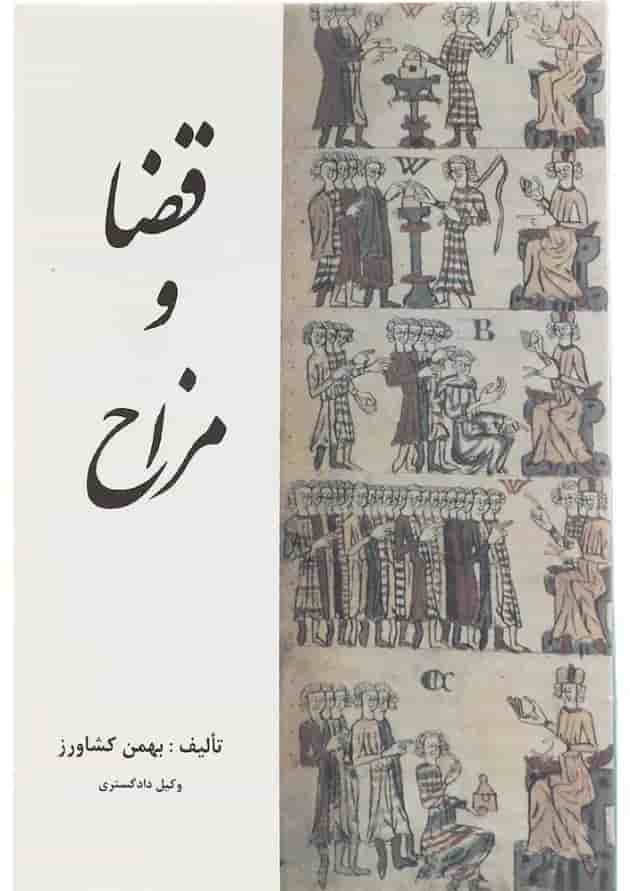 قضا
و
مزاح
تألیف : بهمن کشاورز
وکیل دادگستری
W
B
W